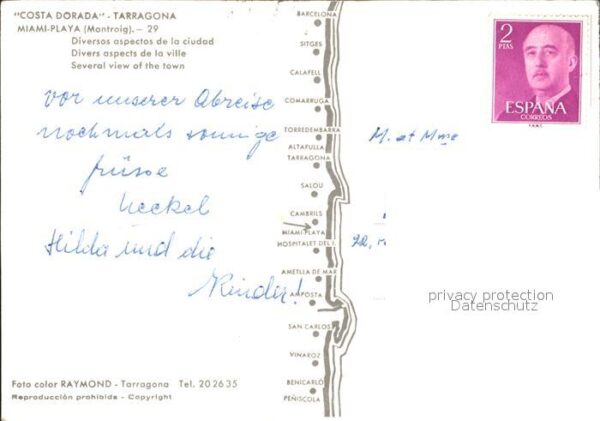 "COSTA DORADA" - TARRAGONA
MIAMI-PLAYA (Montroig). - 29
Diversos aspectos de la ciudad
Divers aspects de la ville
Several view of the town
vor unserer Abreise
nochmals sonnige
Grüsse
Heckel
Hilda und die
Kinder!
Foto color RAYMOND - Tarragona Tel. 20 26 35
Reproducción prohibida - Copyright
BARCELONA
SITGES
CALAFELL
COMARRUGA
TORREDEMBARRA
ALTAFULLA
TARRAGONA
SALOU
CAMBRILS
MIAMI-PLAYA
HOSPITALET DEL I.
AMETLLA DE MAR
AMPOSTA
SAN CARLOS
VINAROZ
BENICARLÓ
PEÑISCOLA
2
PTAS
ESPAÑA
CORREOS
M. et Mme
privacy protection
Datenschutz